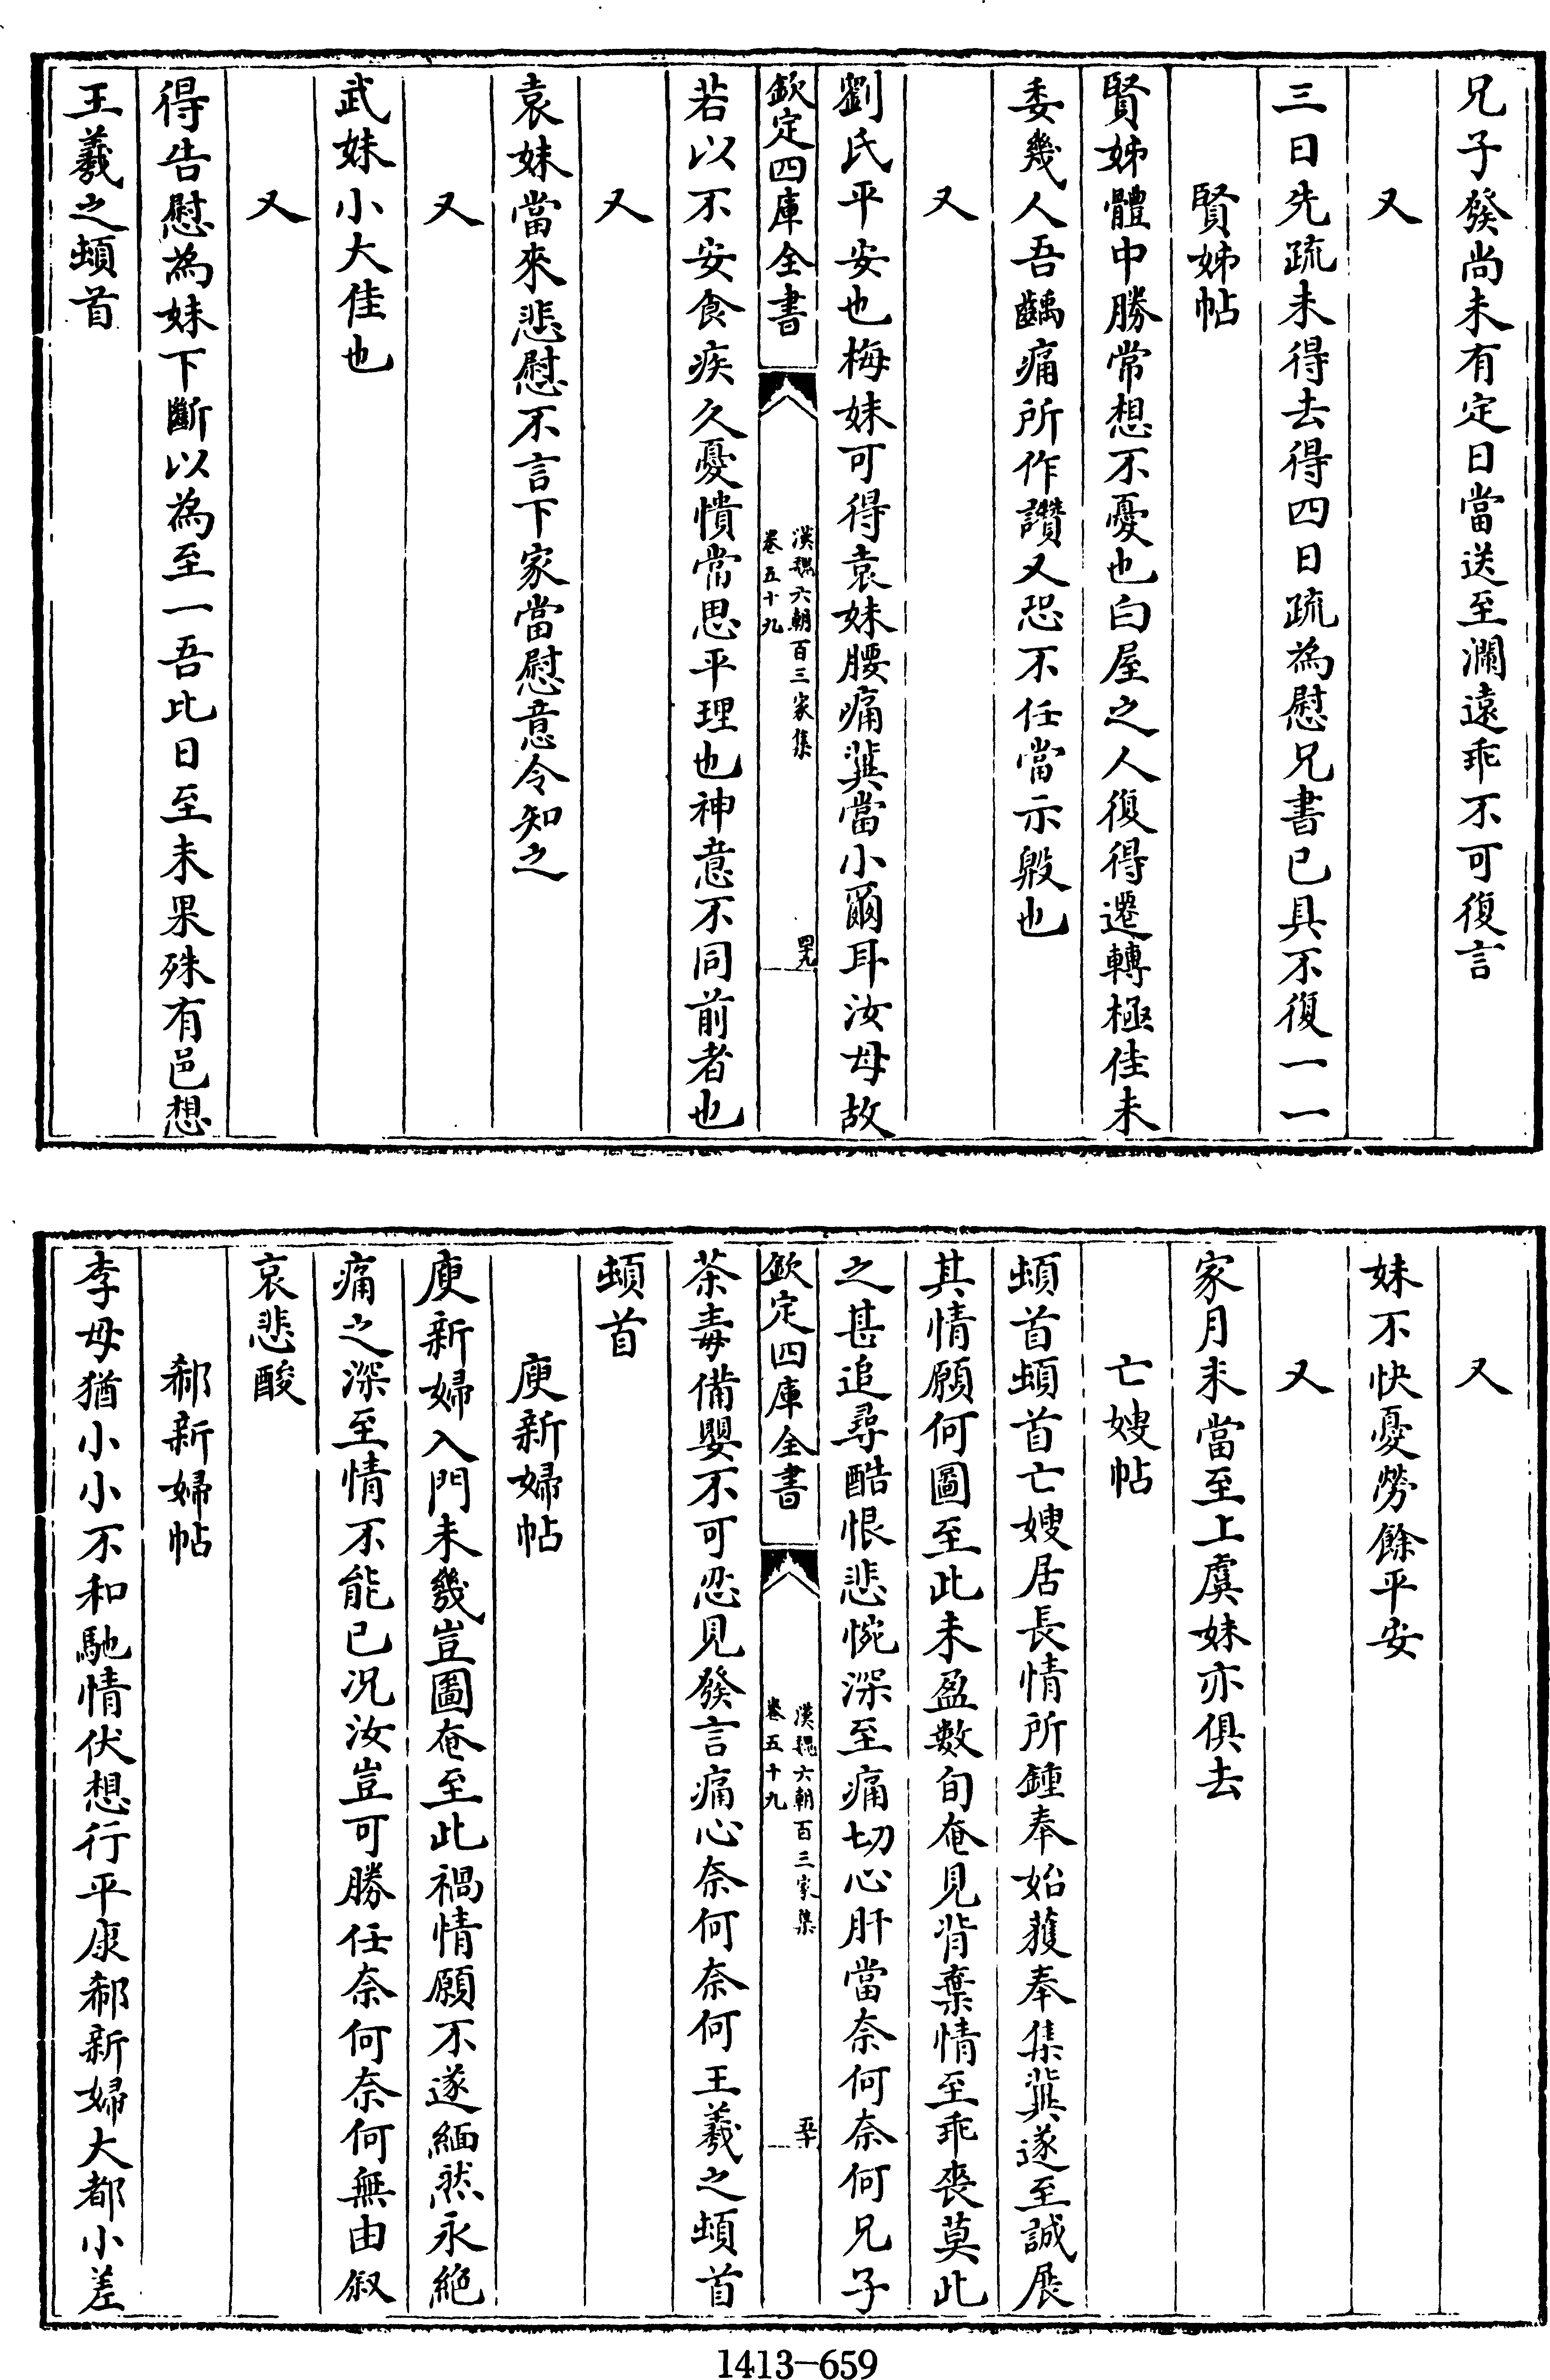 兄子發尚未有定日當送至瀾遠乖不可復言
又
三日先疏未得去得四日疏為慰兄書已具不復一一
賢姊帖
賢姊體中勝常想不憂也白屋之人復得遷轉極佳未
委幾人吾齲痛所作讚又恐不任當示毀也
又
劉氏平安也梅妹可得袁妹腰痛冀當小爾耳汝母故
欽定四庫全書
漢魏六朝百三家集
卷五十九
四九
若以不安食疾久憂憒常思平理也神意不同前者也
又
袁妹當來悲慰不言下家當慰意令知之
又
武妹小大佳也
又
得告慰為妹下斷以為至一吾比日至未果殊有邑想
王羲之頓首
又
妹不快憂勞餘平安
又
家月末當至上虞妹亦俱去
亡嫂帖
頓首頓首亡嫂居長情所鍾奉始獲奉集冀遂至誠展
其情願何圖至此未盈數旬奄見背棄情至乖喪莫此
之甚追尋酷恨悲惋深至痛切心肝當奈何奈何兄子
欽定四庫全書
漢魏六朝百三家集
卷五十九
五十
荼毒備嬰不可忍見發言痛心奈何奈何王羲之頓首
頓首
庾新婦帖
庾新婦入門未幾豈圖奄至此禍情願不遂緬然永絕
痛之深至情不能已况汝豈可勝任奈何奈何無由叙
哀悲酸
郗新婦帖
李母猶小小不和馳情伏想行平康郗新婦大都小差
1413-659